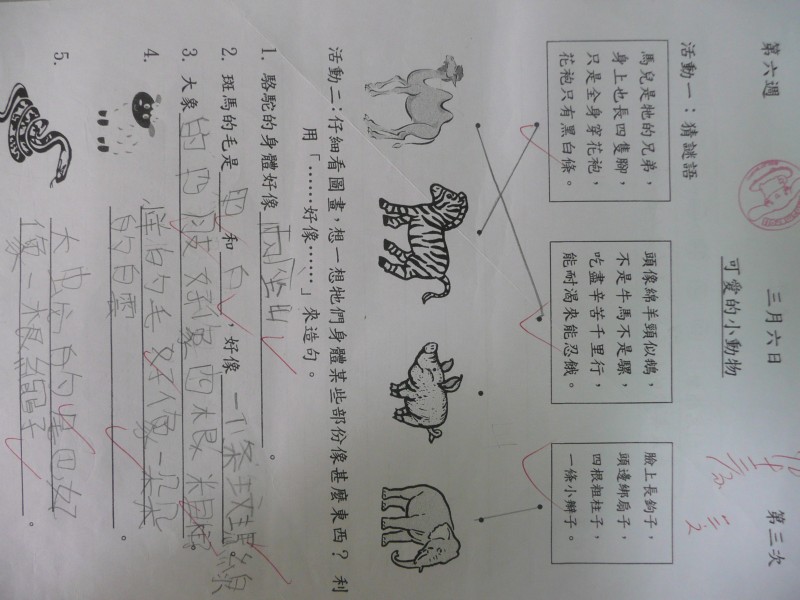 第六週　三月六日　第三次
可愛的小動物
活動一：猜謎語
馬兒是牠的兄弟，
身上也長四隻腳，
只是全身穿花袍，
花袍只有黑白條。
頭像綿羊頸似鵝，
不是牛馬不是騾，
吃盡辛苦千里行，
能耐渴來能忍餓。
臉上長鉤子，
頭邊綁扇子，
四根粗柱子，
一條小辮子。
活動二：仔細看圖畫，想一想牠們身體某些部份像甚麼東西？利
用「……好像……」來造句。
1. 駱駝的身體好像 兩座山。
2. 斑馬的毛是 和 白，好像 一條 線。
3. 大象 的四肢好像四根粗。
4. 的毛好像一朵朵
的白雲。
5. 的尾巴好
像一根繩子。